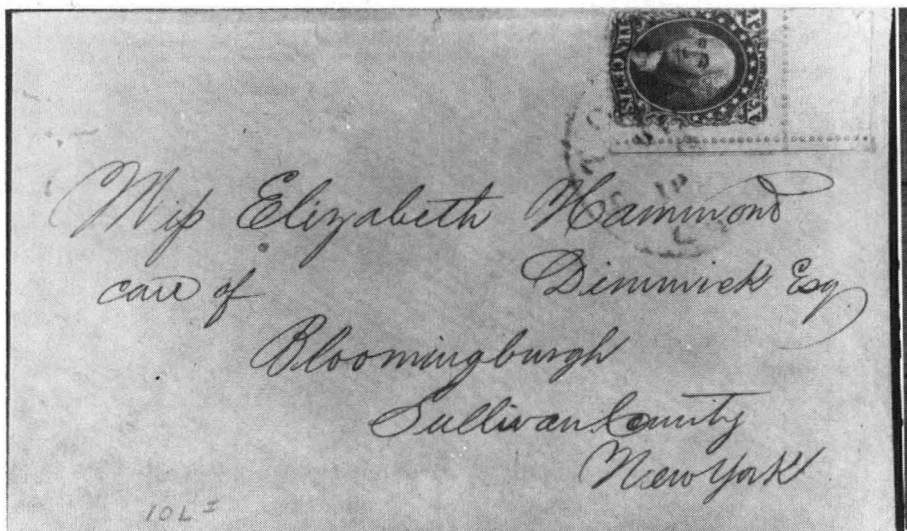 TEN CENTS
Miss Elizabeth Hammond
care of Dimmick Esq
Bloomingburgh
Sullivan County
New York
10L I